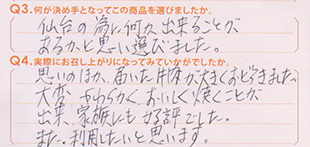 Q3.何が決め手となってこの商品を選びましたか。
仙台の為に何か出来ることが
あるかと思い選びました。
Q4.実際にお召し上がりになってみていかがでしたか。
思いのほか、届いた牛肉が大きくおどろきました。
大変やわらかく、おいしく焼くことが
出来、家族にも好評でした。
また、利用したいと思います。